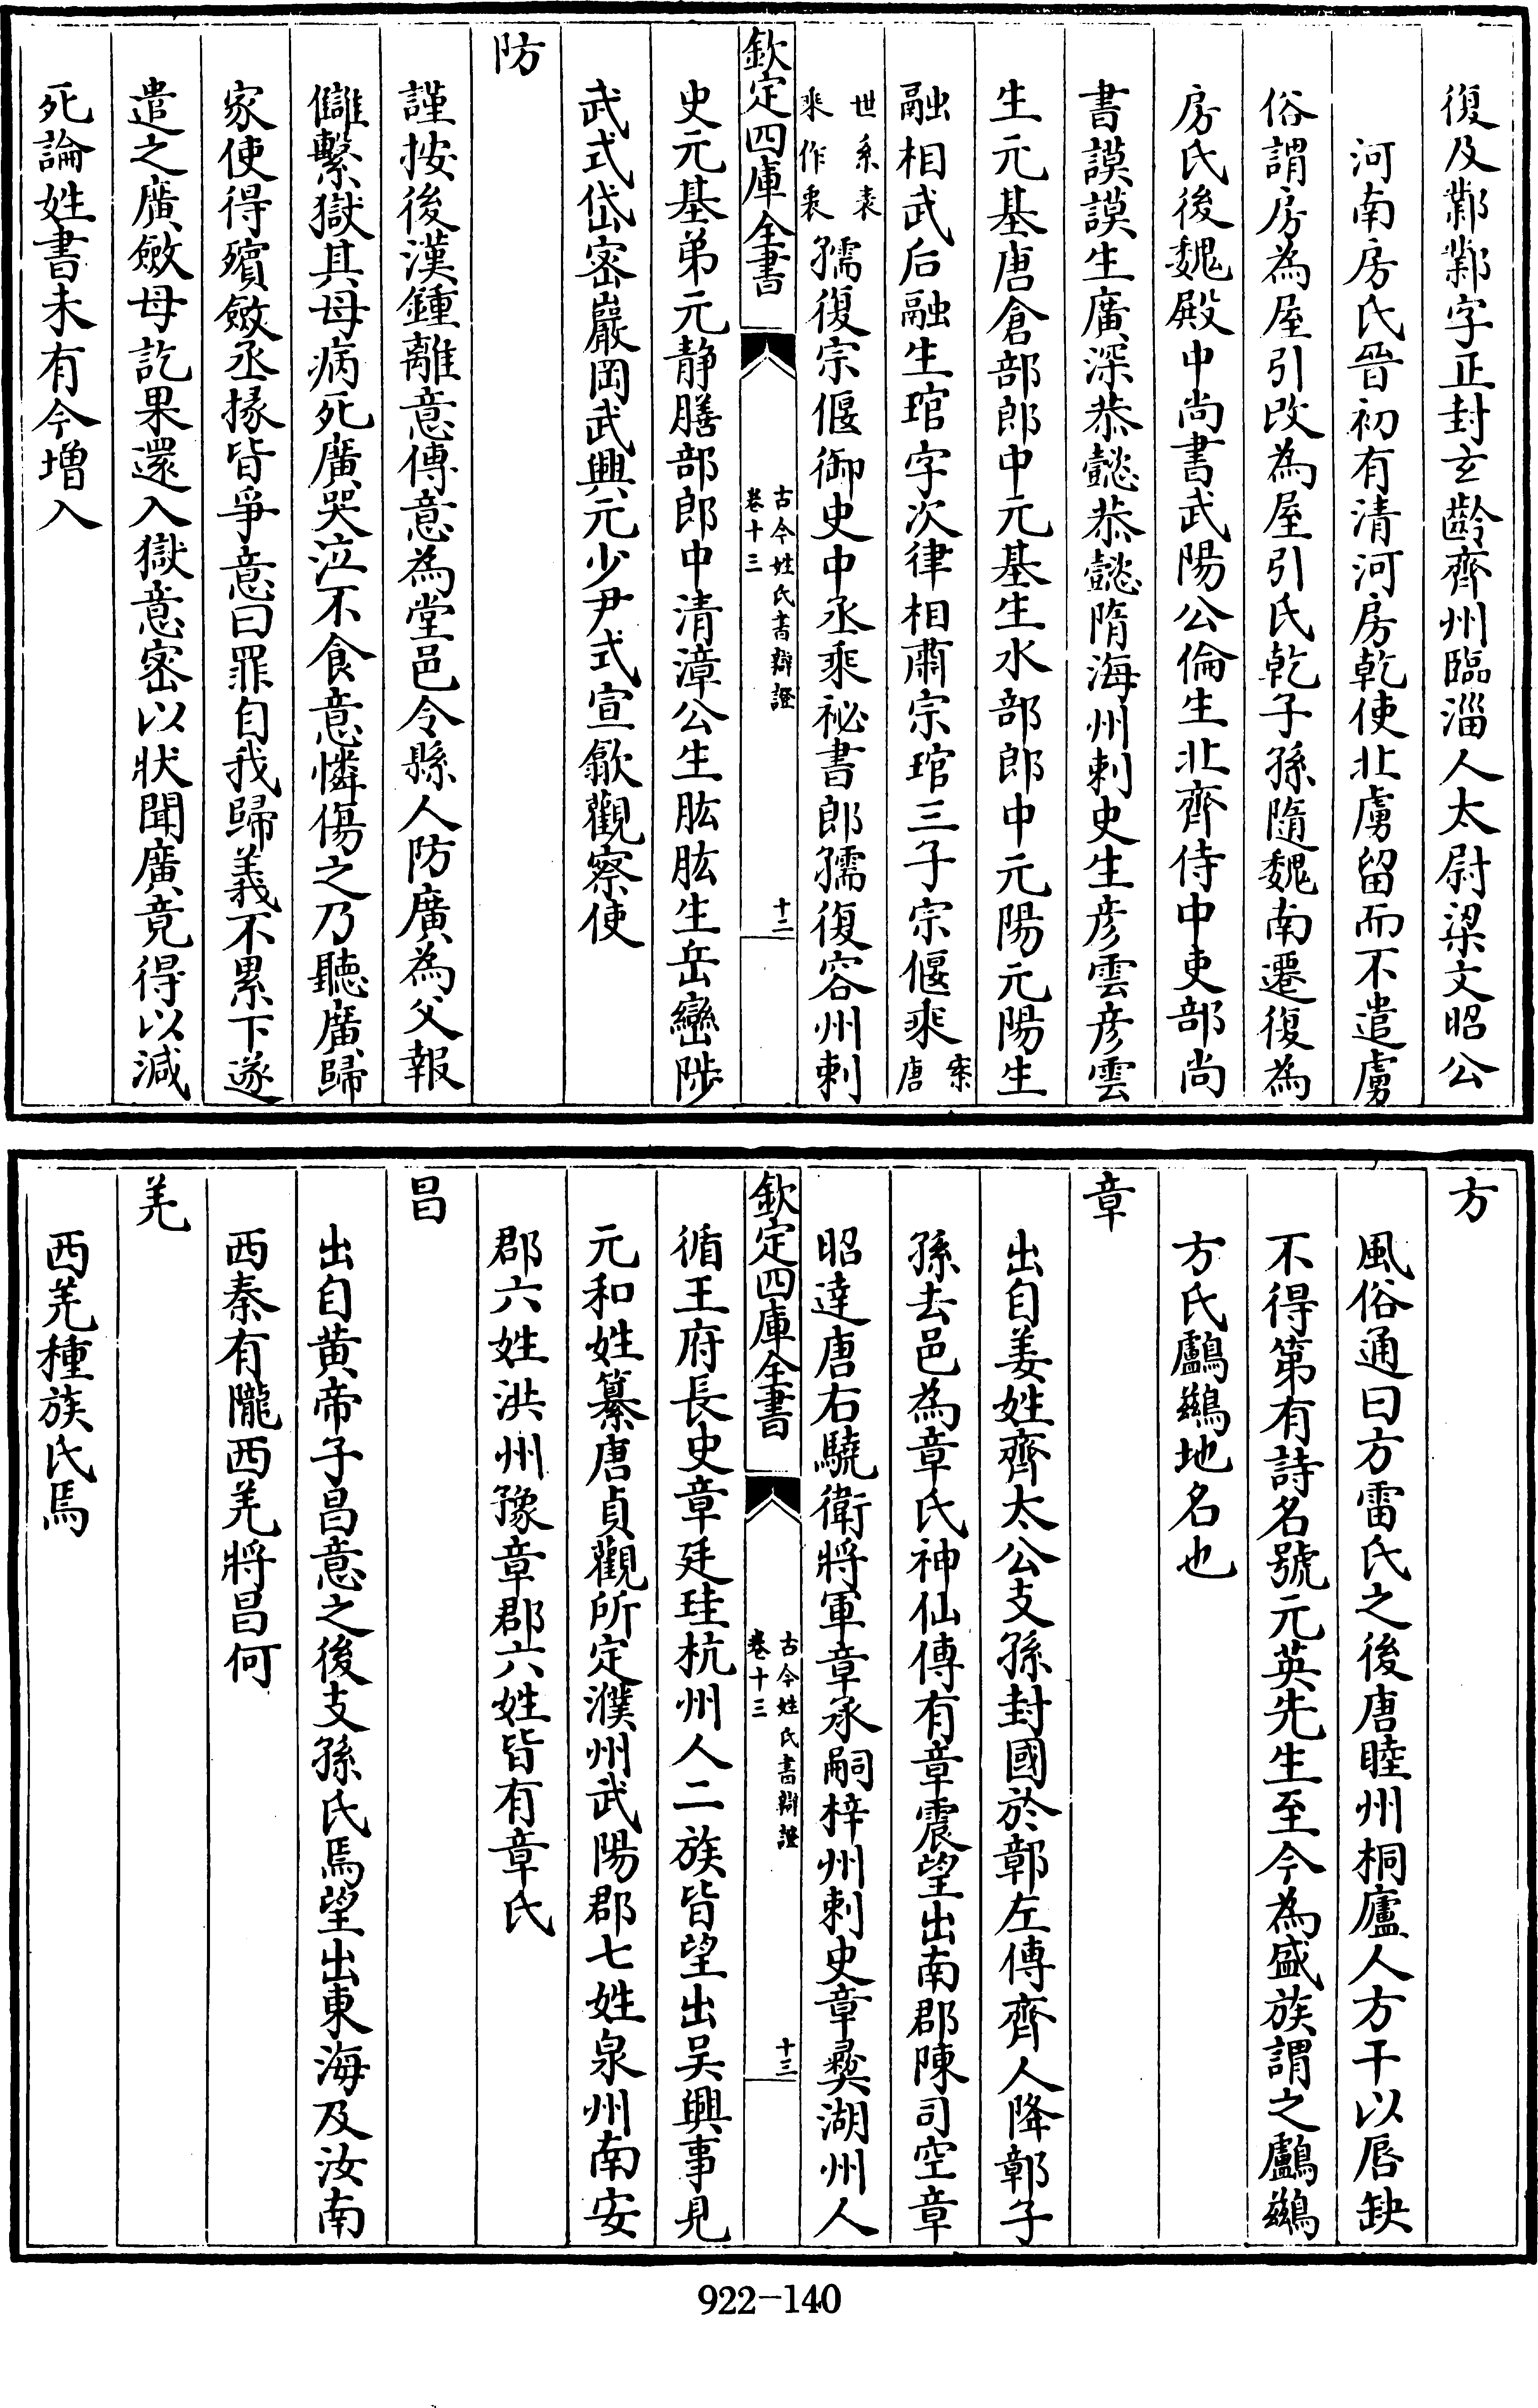 復及鄴鄴字正封玄齡齊州臨淄人太尉梁文昭公
河南房氏晉初有清河房乾使北虜留而不遣虜
俗謂房為屋引改為屋引氏乾子孫隨魏南遷復為
房氏後魏殿中尚書武陽公倫生北齊侍中吏部尚
書謨謨生廣深恭懿恭懿隋海州刺史生彦雲彦雲
生元基唐倉部郎中元基生水部郎中元陽元陽生
融相武后融生琯字次律相肅宗琯三子宗偃乘案唐
世系表乘作椉孺復宗偃御史中丞乘祕書郎孺復容州刺
欽定四庫全書
古今姓氏書辯證
卷十三
十二
史元基弟元静膳部郎中清漳公生肱肱生岳巒陟
武式岱密巖岡武興元少尹式宣歙觀察使
防
謹按後漢鍾離意傳意為堂邑令縣人防廣為父報
讎繫獄其母病死廣哭泣不食意憐傷之乃聽廣歸
家使得殯斂丞掾皆爭意曰罪自我歸義不累下遂
遣之廣斂母訖果還入獄意密以狀聞廣竟得以減
死論姓書未有今增入
方
風俗通曰方雷氏之後唐睦州桐廬人方干以唇缺
不得第有詩名號元英先生至今為盛族謂之鸕鷀
方氏鸕鷀地名也
章
出自姜姓齊太公支孫封國於鄣左傳齊人降鄣子
孫去邑為章氏神仙傳有章震望出南郡陳司空章
昭達唐右驍衛將軍章承嗣梓州刺史章彝湖州人
欽定四庫全書
古今姓氏書辯證
卷十三
十三
循王府長史章廷珪杭州人二族皆望出吴興事見
元和姓纂唐貞觀所定濮州武陽郡七姓泉州南安
郡六姓洪州豫章郡六姓皆有章氏
昌
出自黄帝子昌意之後支孫氏焉望出東海及汝南
西秦有隴西羌將昌何
羌
西羌種族氏焉
922-140